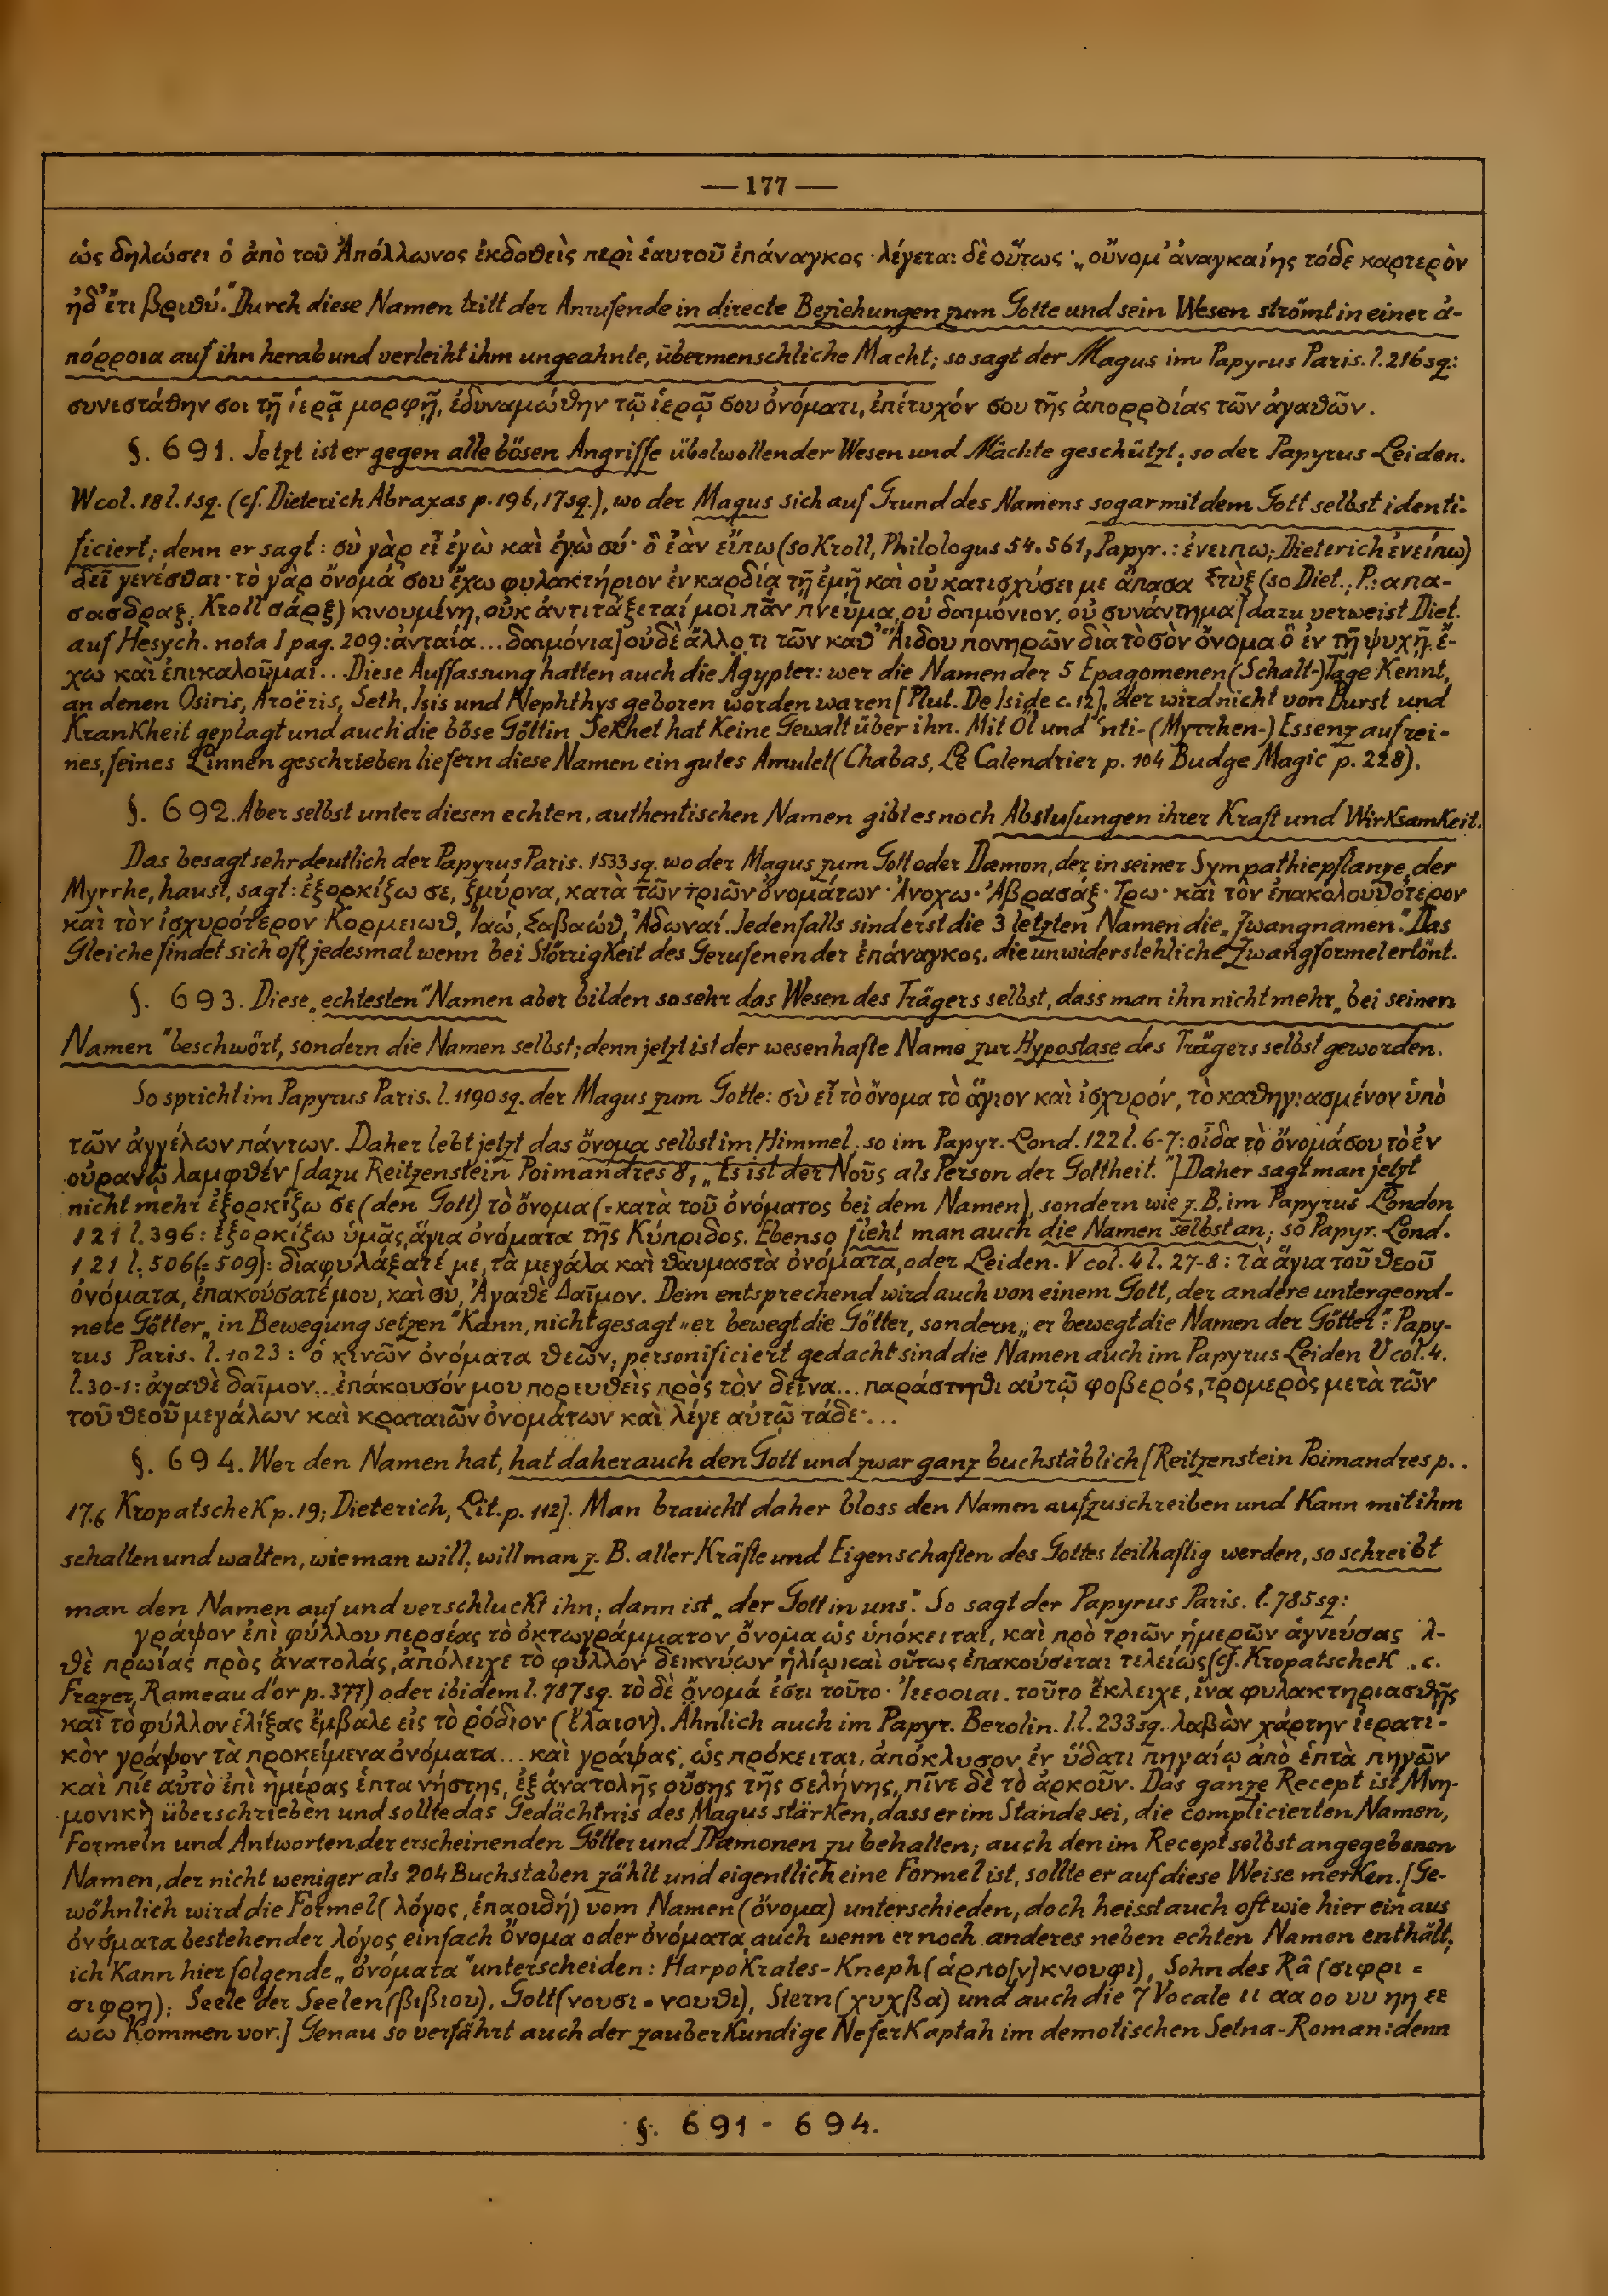 — 177 —
ὡς δηλώσει ὁ ἀπὸ τοῦ Ἀπόλλωνος ἐκδοθεὶς περὶ ἑαυτοῦ ἐπάναγκος · λέγεται δὲ οὕτως · „οὔνομ’ ἀναγκαίης τόδε καρτερὸν
ἠδ’ ἔτι βριθύ.“ Durch diese Namen tritt der Anrufende in directe Beziehungen zum Gotte und sein Wesen strömt in einer ἀ-
πόρροια auf ihn herab und verleiht ihm ungeahnte, übermenschliche Macht; so sagt der Magus im Papyrus Paris. l. 216 sq.:
συνεστάθην σοι τῇ ἱερᾷ μορφῇ, ἐδυναμώθην τῷ ἱερῷ σου ὀνόματι, ἐπέτυχόν σου τῆς ἀπορροίας τῶν ἀγαθῶν.
§. 691. Jetzt ist er gegen alle bösen Angriffe übelwollender Wesen und Mächte geschützt; so der Papyrus Leiden.
W col. 18 l. 1 sq. (cf. Dieterich Abraxas p. 196, 17 sq.), wo der Magus sich auf Grund des Namens sogar mit dem Gott selbst identi-
ficiert; denn er sagt: σὺ γὰρ εἶ ἐγὼ καὶ ἐγὼ σύ· ὃ ἐὰν εἴπω (so Kroll, Philologus 54. 561, Papyr.: ἐνειπω; Dieterich ἐνείπω)
δεῖ γενέσθαι · τὸ γὰρ ὄνομά σου ἔχω φυλακτήριον ἐν καρδίᾳ τῇ ἐμῇ καὶ οὐ κατισχύσει με ἅπασα Στὺξ (so Diet.; P.: απα-
σασδραξ; Kroll σάρξ) κινουμένη, οὐκ ἀντιτάξεταί μοι πᾶν πνεῦμα, οὐ δαιμόνιον, οὐ συνάντημα [dazu verweist Diet.
auf Hesych. nota I pag. 209: ἀνταία... δαιμόνια] οὐδὲ ἄλλο τι τῶν καθ’ Ἅιδου πονηρῶν διὰ τὸ σὸν ὄνομα ὃ ἐν τῇ ψυχῇ ἔ-
χω καὶ ἐπικαλοῦμαι... Diese Auffassung hatten auch die Ägypter: wer die Namen der 5 Epagomenen (Schalt-) Tage Kennt,
an denen Osiris, Aroëris, Seth, Isis und Nephthys geboren worden waren [Plut. De Iside c. 12], der wird nicht von Durst und
KranKheit geplagt und auch die böse Göttin SeKhet hat Keine Gewalt über ihn. Mit Öl und ʿnti- (Myrrhen-) Essenz auf rei-
nes, feines Linnen geschrieben liefern diese Namen ein gutes Amulet (Chabas, Le Calendrier p. 104 Budge Magic p. 228).
§. 692. Aber selbst unter diesen echten, authentischen Namen gibt es noch Abstufungen ihrer Kraft und WirKsamKeit.
Das besagt sehr deutlich der Papyrus Paris. 1533 sq. wo der Magus zum Gott oder Dæmon, der in seiner Sympathiepflanze, der
Myrrhe, haust, sagt: ἐξορκίζω σε, ζμύρνα, κατὰ τῶν τριῶν ὀνομάτων · Ἀνοχω · Ἀβρασάξ · Τρω · καὶ τὸν ἐπακολουθότερον
καὶ τὸν ἰσχυρότερον Κορμειωθ, Ἰαώ, Σαβαώθ, Ἀδωναί. Jedenfalls sind erst die 3 letzten Namen die „Zwangnamen“. Das
Gleiche findet sich oft jedesmal wenn bei StörrigKeit des Gerufenen der ἐπάναγκος, die unwiderstehliche Zwangformel ertönt.
§. 693. Diese „echtesten“ Namen aber bilden so sehr das Wesen des Trägers selbst, dass man ihn nicht mehr „bei seinen
Namen“ beschwört, sondern die Namen selbst; denn jetzt ist der wesenhafte Name zur Hypostase des Trägers selbst geworden.
So spricht im Papyrus Paris. l. 1190 sq. der Magus zum Gotte: σὺ εἶ τὸ ὄνομα τὸ ἅγιον καὶ ἰσχυρόν, τὸ καθηγιασμένον ὑπὸ
τῶν ἀγγέλων πάντων. Daher lebt jetzt das ὄνομα selbst im Himmel; so im Papyr. Lond. 122 l. 6-7: οἶδα τὸ ὄνομά σου τὸ ἐν
οὐρανῷ λαμφθέν [dazu Reitzenstein Poimandres 8, „Es ist der Νοῦς als Person der Gottheit.“] Daher sagt man jetzt
nicht mehr ἐξορκίζω σε (den Gott) τὸ ὄνομα (= κατὰ τοῦ ὀνόματος bei dem Namen), sondern wie z. B. im Papyrus London
121 l. 396: ἐξορκίζω ὑμᾶς, ἅγια ὀνόματα τῆς Κύπριδος. Ebenso fleht man auch die Namen selbst an; so Papyr. Lond.
121 l. 506 (= 509): διαφυλάξατέ με, τὰ μεγάλα καὶ θαυμαστὰ ὀνόματα, oder Leiden. V col. 4 l. 27-8: τὰ ἅγια τοῦ θεοῦ
ὀνόματα, ἐπακούσατέ μου, καὶ σὺ, Ἀγαθὲ Δαῖμον. Dem entsprechend wird auch von einem Gott, der andere untergeord-
nete Götter „in Bewegung setzen“ Kann, nicht gesagt „er bewegt die Götter, sondern „er bewegt die Namen der Götter“: Papy-
rus Paris. l. 1023: ὁ κινῶν ὀνόματα θεῶν; personificiert gedacht sind die Namen auch im Papyrus Leiden V col. 4.
l. 30-1: ἀγαθὲ δαῖμον... ἐπάκουσόν μου πορευθεὶς πρὸς τὸν δεῖνα... παράστηθι αὐτῷ φοβερός, τρομερὸς μετὰ τῶν
τοῦ θεοῦ μεγάλων καὶ κραταιῶν ὀνομάτων καὶ λέγε αὐτῷ τάδε·...
§. 694. Wer den Namen hat, hat daher auch den Gott und zwar ganz buchstäblich [Reitzenstein Poimandres p..
17.6 KropatscheK p. 19; Dieterich, Lit. p. 112]. Man braucht daher bloss den Namen aufzuschreiben und Kann mit ihm
schalten und walten, wie man will; will man z. B. aller Kräfte und Eigenschaften des Gottes teilhaftig werden, so schreibt
man den Namen auf und verschluckt ihn; dann ist „der Gott in uns“. So sagt der Papyrus Paris. l. 785 sq:
γράψον ἐπὶ φύλλου περσέας τὸ ὀκτωγράμματον ὄνομα ὡς ὑπόκειται, καὶ πρὸ τριῶν ἡμερῶν ἁγνεύσας ἐλ-
θὲ πρωίας πρὸς ἀνατολάς, ἀπόλειχε τὸ φύλλον δεικνύων ἡλίῳ καὶ οὕτως ἐπακούσεται τελείως (cf. KropatscheK .c.
Frazer, Rameau d'or p. 377) oder ibidem l. 787 sq. τὸ δὲ ὄνομά ἐστι τοῦτο · Ἰεεοοιαι. τοῦτο ἔκλειχε, ἵνα φυλακτηριασθῇς
καὶ τὸ φύλλον ἑλίξας ἔμβαλε εἰς τὸ ῥόδιον (ἔλαιον). Ähnlich auch im Papyr. Berolin. l. l. 233 sq. λαβὼν χάρτην ἱερατι-
κὸν γράψον τὰ προκείμενα ὀνόματα... καὶ γράψας, ὡς πρόκειται, ἀπόκλυσον ἐν ὕδατι πηγαίῳ ἀπὸ ἑπτὰ πηγῶν
καὶ πίε αὐτὸ ἐπὶ ἡμέρας ἑπτα νήστης, ἐξ ἀνατολῆς οὔσης τῆς σελήνης, πῖνε δὲ τὸ ἀρκοῦν. Das ganze Recept ist Μνη-
μονικὴ überschrieben und sollte das Gedächtnis des Magus stärKen, dass er im Stande sei, die complicierten Namen,
Formeln und Antworten der erscheinenden Götter und Dämonen zu behalten; auch den im Recept selbst angegebenen
Namen, der nicht weniger als 204 Buchstaben zählt und eigentlich eine Formel ist, sollte er auf diese Weise merKen. [Ge-
wöhnlich wird die Formel (λόγος, ἐπαοιδή) vom Namen (ὄνομα) unterschieden, doch heisst auch oft wie hier ein aus
ὀνόματα bestehender λόγος einfach ὄνομα oder ὀνόματα, auch wenn er noch anderes neben echten Namen enthält;
ich Kann hier folgende „ὀνόματα“ unterscheiden: HarpoKrates-Kneph (ἁρπο[ν]κνουφι), Sohn des Râ (σιφρι =
σιφρη); Seele der Seelen (βιβιου), Gott (νουσι = νουθι), Stern (χυχβα) und auch die 7 Vocale ιι αα οο υυ ηη εε
ωω Kommen vor.] Genau so verfährt auch der zauberKundige NeferKaptah im demotischen Setna-Roman: denn
§. 691 - 694.